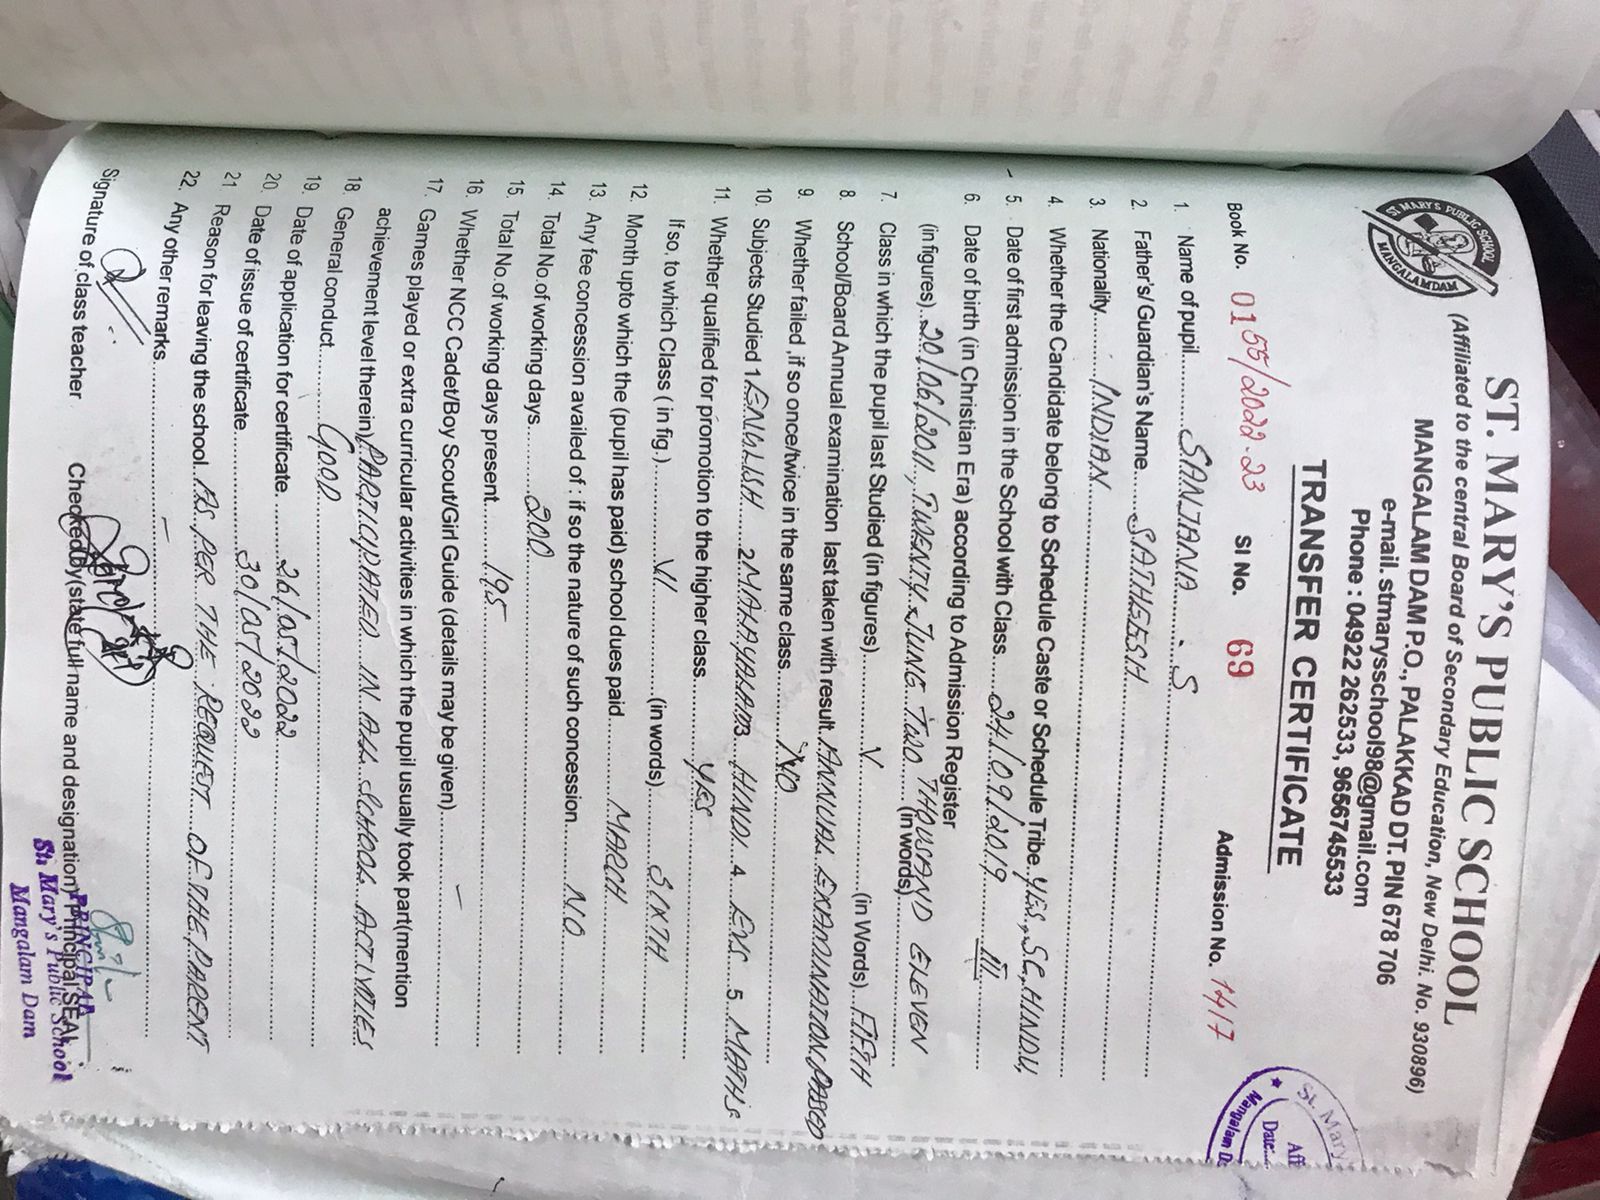 ST. MARY'S PUBLIC SCHOOL MANGALAMDAM
ST. MARY'S PUBLIC SCHOOL
(Affiliated to the central Board of Secondary Education, New Delhi. No. 930896)
MANGALAM DAM P.O., PALAKKAD DT. PIN 678 706
e-mail. stmarysschool98@gmail.com
Phone : 04922 262533, 9656745533
TRANSFER CERTIFICATE
Book No. 0155/2022-23 Sl No. 69 Admission No. 1417
St. Mary
Aff
Date:
Mangalam D
1. Name of pupil SANJANA . S
2. Father's/ Guardian's Name SATHEESH
3. Nationality INDIAN
4. Whether the Candidate belong to Schedule Caste or Schedule Tribe. YES, SC, HINDU,
5. Date of first admission in the School with Class 24/09/2019 III
6. Date of birth (in Christian Era) according to Admission Register
(in figures) 20/06/2011, TWENTY JUNE TWO THOUSAND ELEVEN (in words)
7. Class in which the pupil last Studied (in figures) V (in Words) FIFTH
8. School/Board Annual examination last taken with result ANNUAL EXAMINATION, PASSED
9. Whether failed ,if so once/twice in the same class NO
10. Subjects Studied 1 ENGLISH 2 MALAYALAM 3 HINDI 4 EVS 5 MATHS
11. Whether qualified for promotion to the higher class YES
If so, to which Class ( in fig.) VI (in words) SIXTH
12. Month upto which the (pupil has paid) school dues paid MARCH
13. Any fee concession availed of : if so the nature of such concession NO
14. Total No. of working days 200
15. Total No. of working days present 195
16. Whether NCC Cadet/Boy Scout/Girl Guide (details may be given) –
17. Games played or extra curricular activities in which the pupil usually took part(mention
achievement level therein) PARTICIPATED IN ALL SCHOOL ACTIVITIES
18. General conduct GOOD
19. Date of application for certificate 26/05/2022
20. Date of issue of certificate 30/05/2022
21 Reason for leaving the school. AS PER THE REQUEST OF THE PARENT
22. Any other remarks. –
Signature of class teacher Checked by(state full name and designation) Principal SEAL
PRINCIPAL
St. Mary's Public School
Mangalam Dam